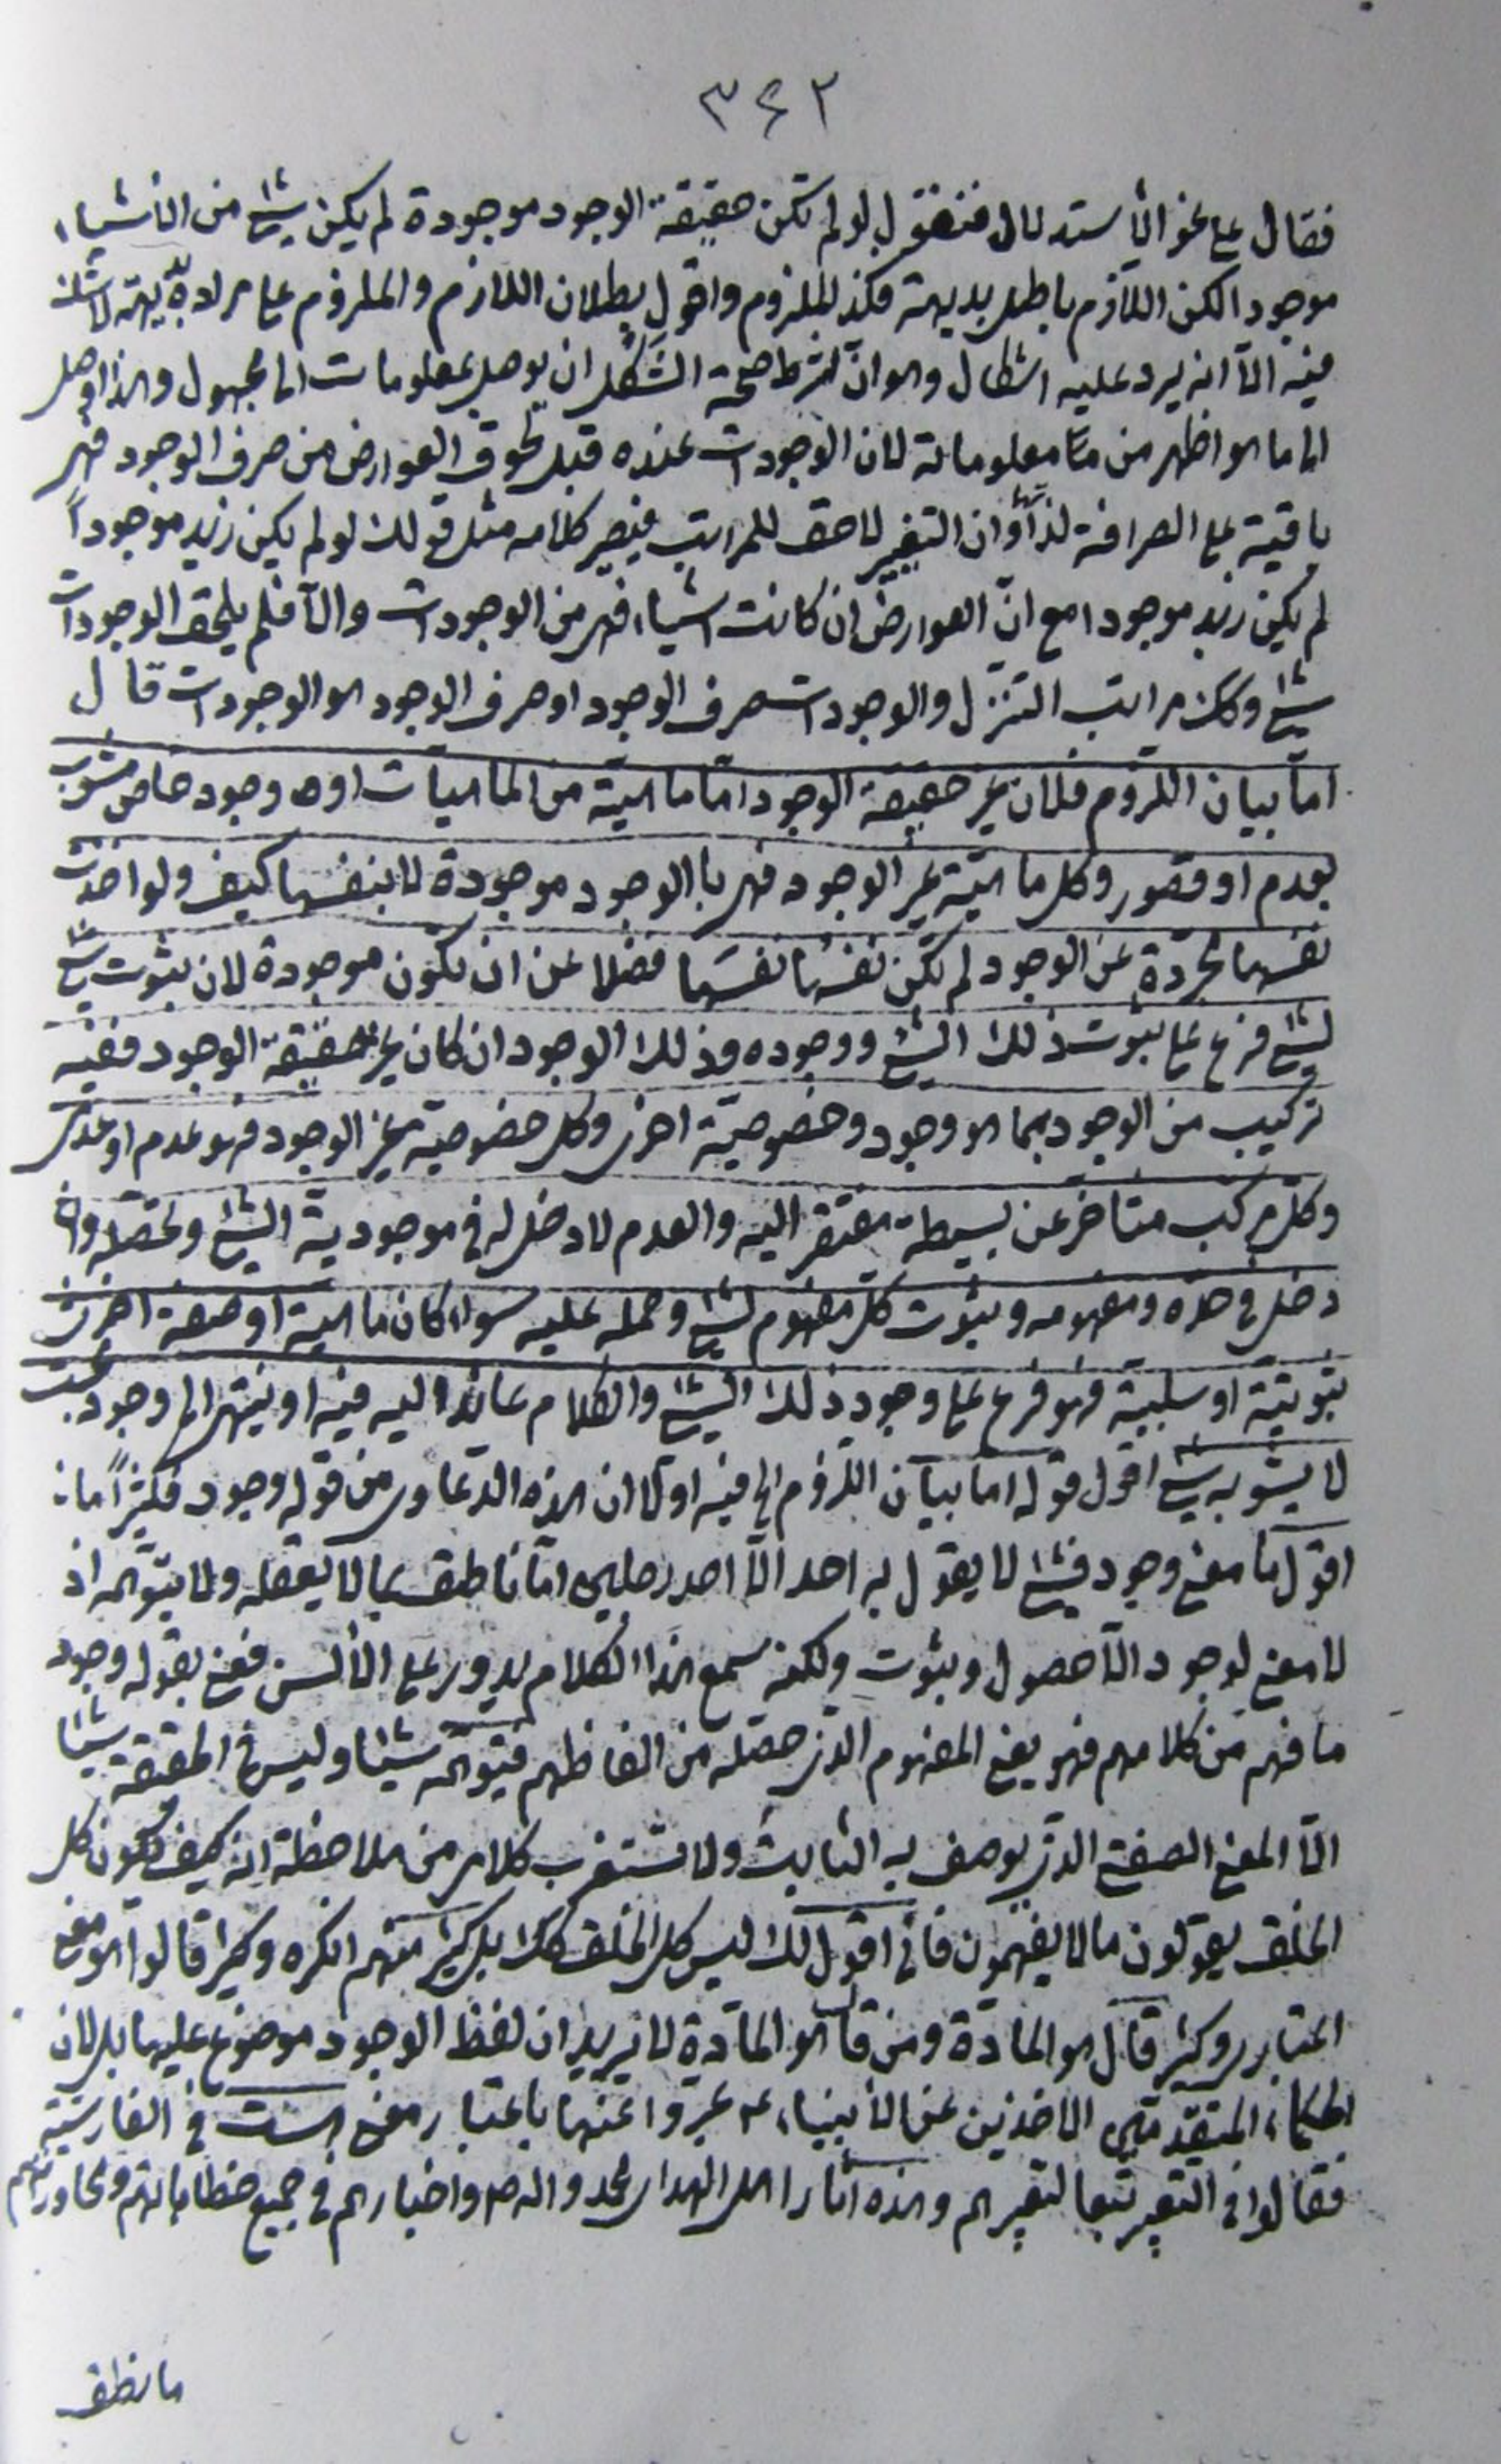 ٣٤٢
فقال على نحو الأستدلال فنقول لو لم تكن حقيقة الوجود موجودة لم يكن شئ من الأشياء
موجودا لكن اللازم باطل بديهة فكذا الملزوم واقول بطلان اللازم والملزوم على مراده بديهة لا شك
فيه الّا انه يرد عليه اشكال وهو انّ شرط صحة الشكل ان يوصل بمعلومات الى مجهول وهذا اوصل
الى ما هو اظهر من معلوماته لان الوجودات عنده قبل لحوق العوارض من صرف الوجود فهى
باقية على الصرافة لذاتها وان التغيير لاحق للمراتب فيصير كلامه مثل قولك لو لم يكن زيد موجوداً
لم يكن زيد موجودا مع انّ العوارض ان كانت اشياء فهى من الوجودات والّا فلم يلحق الوجودات
شئ وكك مراتب التنزل والوجودات صرف الوجود او صرف الوجود هو الوجودات قال
امّا بيان اللزوم فلان غير حقيقة الوجود امّا ماهية من الماهيات او وجود خاص مشوب
بعدم او قصور وكل ماهيّة غير الوجود فهى بالوجود موجودة لا بنفسها كيف ولو اخذت
نفسها مجرّدة عن الوجود لم تكن نفسها نفسها فضلا عن ان تكون موجودة لان ثبوت شئ
لشئ فرع على ثبوت ذلك الشئ ووجوده وذلك الوجود ان كان غير حقيقة الوجود ففيه
تركيب من الوجود بما هو وجود وخصوصيّة اخرى وكل خصوصية غير الوجود فهو عدم او عدمى
وكل مركب متأخر عن بسيطه مفتقر اليه والعدم لا دخل له فى موجودية الشئ وتحصّله وان
دخل فى حدّه ومفهومه وثبوت كل مفهوم لشئ وحمله عليه سواء كان ماهية او صفة اخرى
ثبوتيّة او سلبيّة فهو فرع على وجود ذلك الشئ والكلام عائد اليه فيه او ينتهى الى وجود بحت
لا يشوبه شئ اقول قوله امّا بيان اللزوم الخ فيه اولا ان هذه الدعاوى من قوله وجود فكثيراً ما
اقول امّا معنى وجود فشئ لا يقول به احد الّا احد رجلين امّا ناطق بما لا يعقله ولا يتوهمه اذ
لا معنى لوجود الّا حصول وثبوت ولكنه سمع هذا الكلام يدور على الألسن فعنى بقوله وجود
ما فهم من كلامهم فهو يعنى المفهوم الذى حصّله من الفاظهم فيتوهمه شيئا وليس فى الحقيقة شيئا
الّا المعنى الصفتى الذى يوصف به الثابت ولا تستغرب كلامى من ملاحظة انه كيف يكون كل
الخلق يقولون ما لا يفهمون فانى اقول لك ليس كل الخلق كذلك بل كثير منهم انكره وكثير قالوا هو معنى
اعتبارى وكثير قال هو المادّة ومن قال هو المادّة لا يريد ان لفظ الوجود موضوع عليها بل لان
الحكماء المتقدّمين الاخذين عن الأنبياء ع عبّروا عنها باعتبار معنى هست فى الفارسيّة
فقالوا فى التعبير تبعا لتعبيرهم وهذه آثار اهل الهدى محمد واله ص واخبارهم فى جميع خطاباتهم ومحاوراتهم
ما نطق